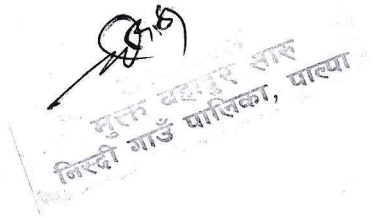 मुक्त बहादुर सारु
निस्दी गाउँ पालिका, पाल्पा